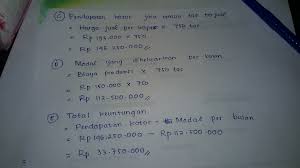 Pendapatan kotor jika semua tas terjual
= Harga jual per × 750 tas
= Rp 195.000 × 750
= Rp 146.250.000
Modal yang dikeluarkan per bulan
= Biaya produksi × 750 tas
= Rp 150.000 × 750
= Rp 112.500.000
Total keuntungan
= Pendapatan kotor - Modal per bulan
= Rp 146.250.000 - Rp 112.500.000
= Rp 33.750.000